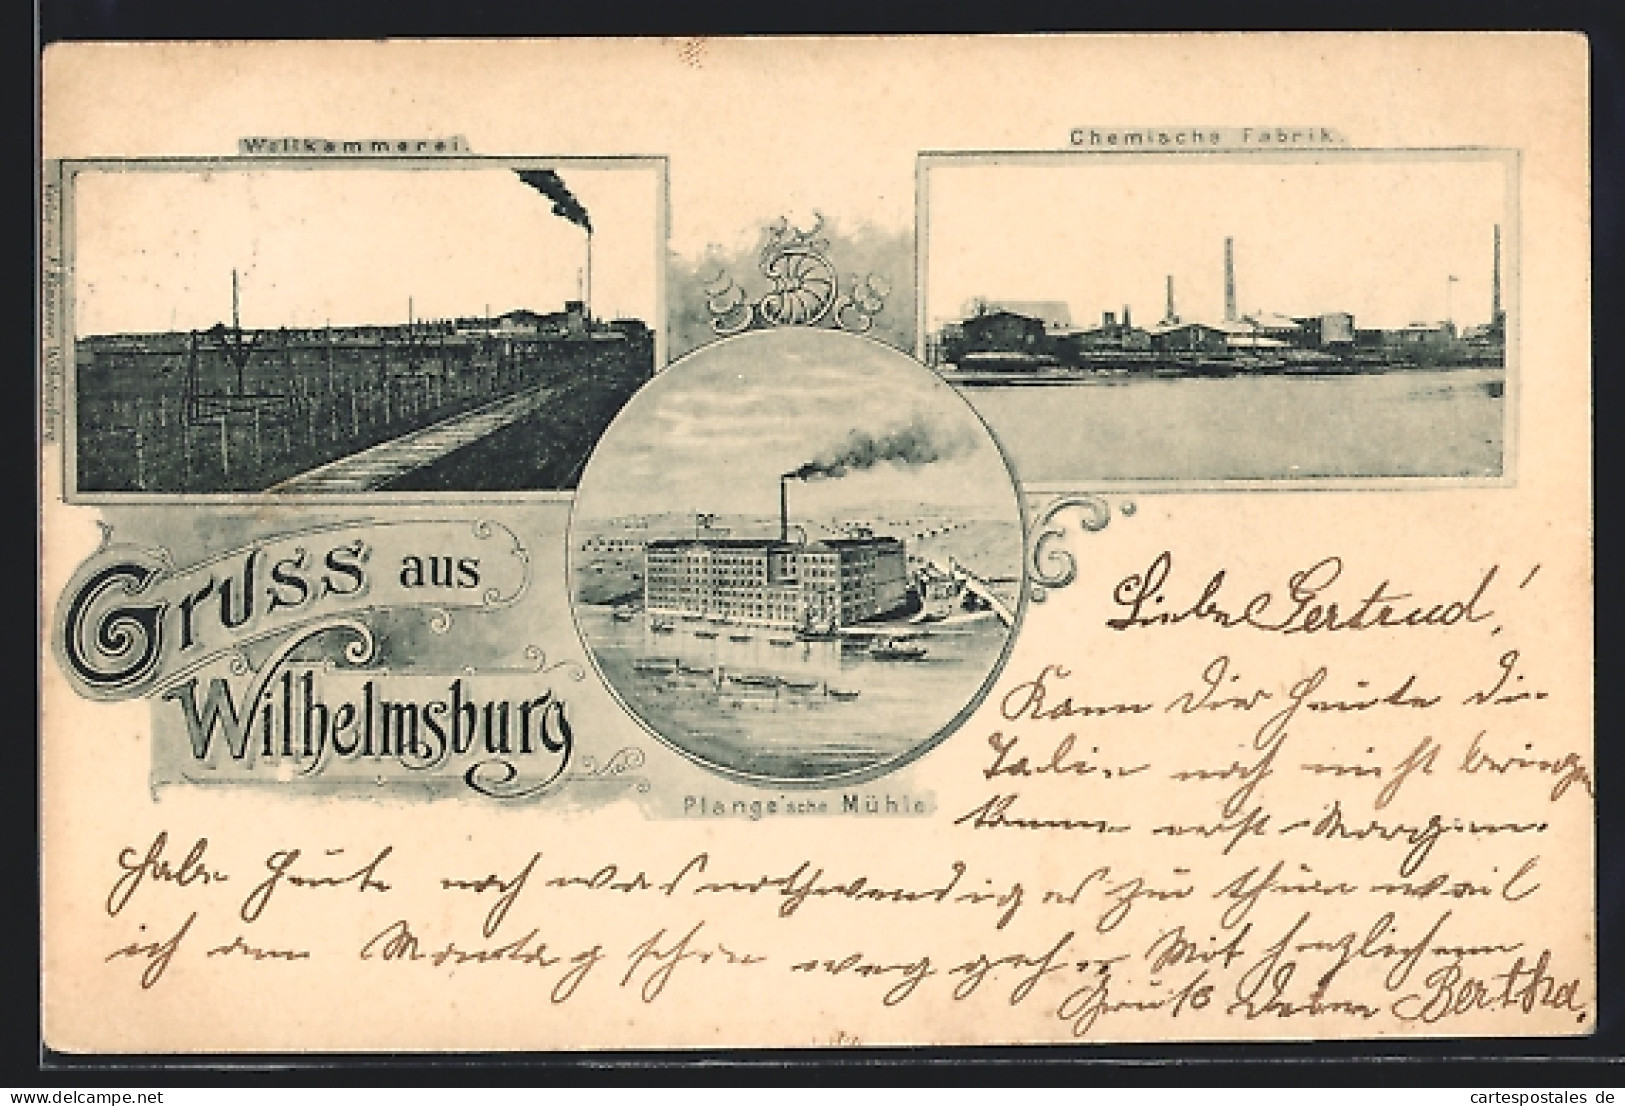 Wollkämmerei.
Chemische Fabrik.
Gruss aus
Wilhelmsburg
Plange'sche Mühle
Liebe Gertrud!
Kann Dir heute die
noch nicht bringen
komme erst Morgen.
habe heute noch was nothwendiges zu thun weil
ich am Montag schon weg gehe. Mit herzlichem
Gruß Deine Bertha.
www.cartespostales.eu
cartespostales de